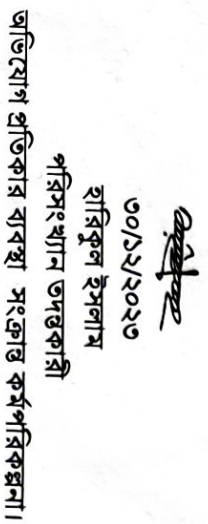 ৩০/১২/২০২৩
হারিকুল ইসলাম
পরিসংখ্যান তদন্তকারী
অভিযোগ প্রতিকার ব্যবস্থা সংক্রান্ত কর্মপরিকল্পনা।